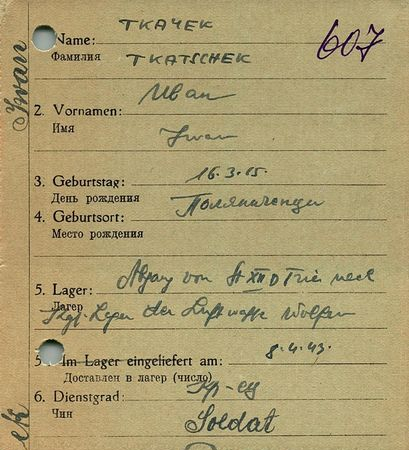 Iwan
ТКАЧЕК
607
Name:
Фамилия
TKATSCHEK
Иван
2. Vornamen:
Имя
Iwan
3. Geburtstag: 16.3.15.
День рождения
4. Geburtsort:
Место рождения
von St XII D Trier nach
5. Lager:
Лагер
Kgf. Lager der Luftwaffe Wolfen
5. Im Lager eingeliefert am: 8.4.43.
Доставлен в лагер (число)
6. Dienstgrad:
Чин
Soldat
ek